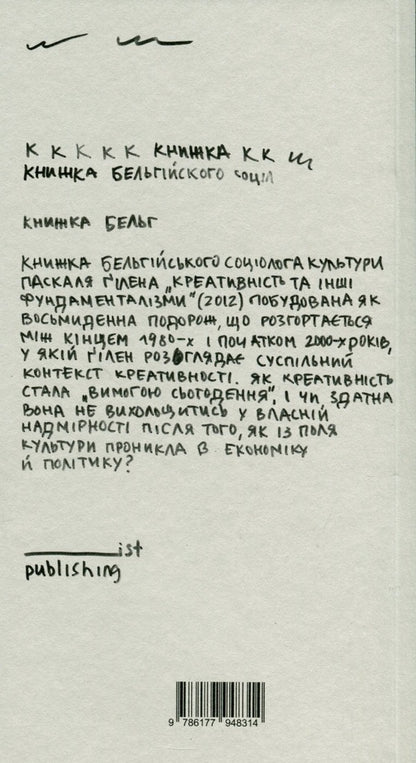 К К К К К КНИЖКА К К Ш
КНИЖКА БЕЛЬГІЙСКОГО СОЦІЛ
КНИЖКА БЕЛЬГ
КНИЖКА БЕЛЬГІЙСЬКОГО СОЦІОЛОГА КУЛЬТУРИ
ПАСКАЛЯ ҐІЛЕНА „КРЕАТИВНІСТЬ ТА ІНШІ
ФУНДАМЕНТАЛІЗМИ" (2012) ПОБУДОВАНА ЯК
ВОСЬМИДЕННА ПОДОРОЖ, ЩО РОЗГОРТАЄТЬСЯ
МІЖ КІНЦЕМ 1980-х І ПОЧАТКОМ 2000-х РОКІВ,
У ЯКІЙ ҐІЛЕН РОЗГЛЯДАЄ СУСПІЛЬНИЙ
КОНТЕКСТ КРЕАТИВНОСТІ. ЯК КРЕАТИВНІСТЬ
СТАЛА „ВИМОГОЮ СЬОГОДЕННЯ", І ЧИ ЗДАТНА
ВОНА НЕ ВИХОЛОЩИТИСЬ У ВЛАСНІЙ
НАДМІРНОСТІ ПІСЛЯ ТОГО, ЯК ІЗ ПОЛЯ
КУЛЬТУРИ ПРОНИКЛА В ЕКОНОМІКУ
Й ПОЛІТИКУ?
_________ist
publishing
9 786177 948314